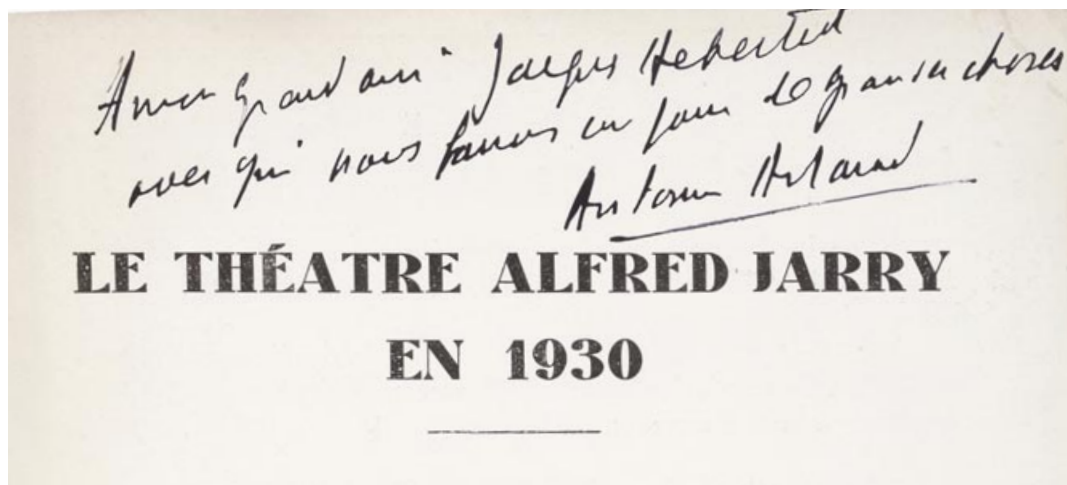 A mon grand ami Jacques Hebertot
avec qui nous ferons un jour de grandes choses
Antonin Artaud
LE THÉATRE ALFRED JARRY
EN 1930